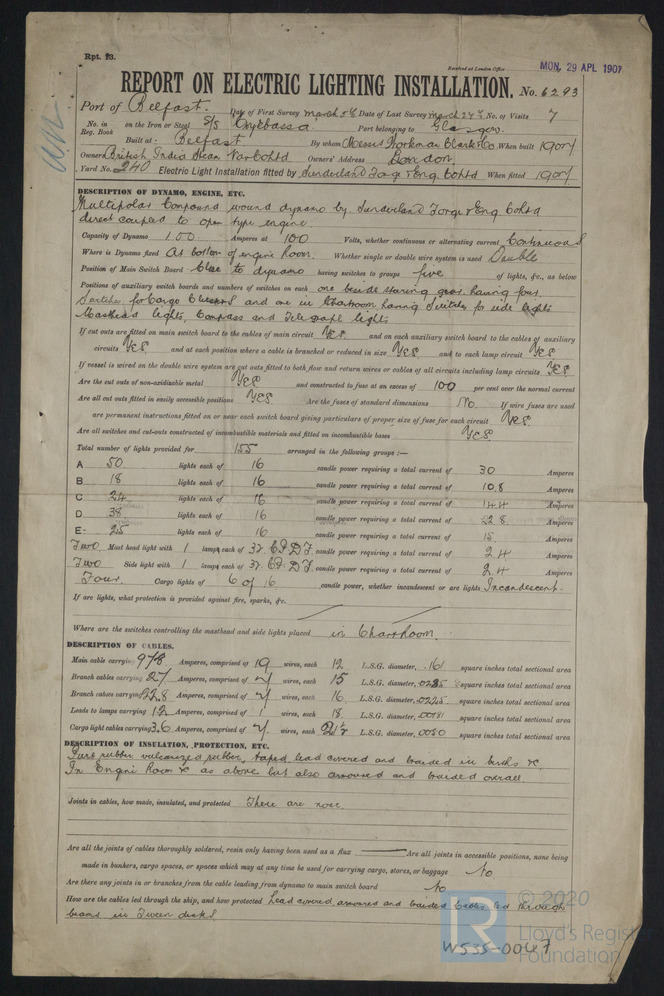 Rpt. 13.
Received at London Office MON. 29 APL 1907
REPORT ON ELECTRIC LIGHTING INSTALLATION. No. 6293
Port of Belfast. Date of First Survey March 5th Date of Last Survey March 27th No. of Visits 7
No. in Reg. Book on the Iron or Steel S/S Port belonging to Glasgow.
Built at Belfast By whom Messrs Workman Clark & Co. When built 1907
Owners British India Steam Nav. Co Ltd Owners' Address London.
Yard No. 240 Electric Light Installation fitted by Sunderland Forge & Eng. Co Ltd When fitted 1907
DESCRIPTION OF DYNAMO, ENGINE, ETC.
Multipolar Compound wound dynamo by Sunderland Forge & Eng. Co Ltd
direct coupled to open type engine.
Capacity of Dynamo 100 Amperes at 100 Volts, whether continuous or alternating current Continuous
Where is Dynamo fixed At bottom of engine room. Whether single or double wire system is used Double
Position of Main Switch Board Close to dynamo having switches to groups five of lights, &c., as below
Positions of auxiliary switch boards and numbers of switches on each one beside steering gear, having four
Switches for Cargo Clusters and one in Chartroom having Switches for side lights
Masthead lights, Compass and Telegraph lights
If cut outs are fitted on main switch board to the cables of main circuit Yes and on each auxiliary switch board to the cables of auxiliary
circuits Yes and at each position where a cable is branched or reduced in size Yes and to each lamp circuit Yes
If vessel is wired on the double wire system are cut outs fitted to both flow and return wires or cables of all circuits including lamp circuits Yes
Are the cut outs of non-oxidizable metal Yes and constructed to fuse at an excess of 100 per cent over the normal current
Are all cut outs fitted in easily accessible positions Yes Are the fuses of standard dimensions No If wire fuses are used
are permanent instructions fitted on or near each switch board giving particulars of proper size of fuse for each circuit Yes
Are all switches and cut-outs constructed of incombustible materials and fitted on incombustible bases Yes
Total number of lights provided for 155 arranged in the following groups :—
A 50 lights each of 16 candle power requiring a total current of 30 Amperes
B 18 lights each of 16 candle power requiring a total current of 10.8 Amperes
C 24 lights each of 16 candle power requiring a total current of 14.4 Amperes
D 38 lights each of 16 candle power requiring a total current of 22.8 Amperes
E 25 lights each of 16 candle power requiring a total current of 15 Amperes
Two Mast head light with 1 lamps each of 32 candle power requiring a total current of 2.4 Amperes
Two Side light with 1 lamps each of 32 candle power requiring a total current of 2.4 Amperes
Four Cargo lights of 6 of 16 candle power, whether incandescent or arc lights Incandescent.
If arc lights, what protection is provided against fire, sparks, &c.
Where are the switches controlling the masthead and side lights placed in Chartroom.
DESCRIPTION OF CABLES.
Main cable carrying 97.8 Amperes, comprised of 19 wires, each 12 L.S.G. diameter, .161 square inches total sectional area
Branch cables carrying 27 Amperes, comprised of 7 wires, each 15 L.S.G. diameter, square inches total sectional area
Branch cables carrying 22.8 Amperes, comprised of 7 wires, each 16 L.S.G. diameter, .0225 square inches total sectional area
Leads to lamps carrying 1.2 Amperes, comprised of 1 wires, each 18 L.S.G. diameter, square inches total sectional area
Cargo light cables carrying 3.6 Amperes, comprised of 7 wires, each L.S.G. diameter, square inches total sectional area
DESCRIPTION OF INSULATION, PROTECTION, ETC.
Pure rubber, vulcanized rubber, taped, lead covered and braided in berths &c.
In Engine Room &c as above but also armoured and braided overall.
Joints in cables, how made, insulated, and protected There are none.
Are all the joints of cables thoroughly soldered, resin only having been used as a flux Are all joints in accessible positions, none being
made in bunkers, cargo spaces, or spaces which may at any time be used for carrying cargo, stores, or baggage No
Are there any joints in or branches from the cable leading from dynamo to main switch board No
How are the cables led through the ship, and how protected Lead covered, armoured and braided Cables led through
beams in Tween decks.
© 2020
Lloyd's Register
Foundation
W535-0047